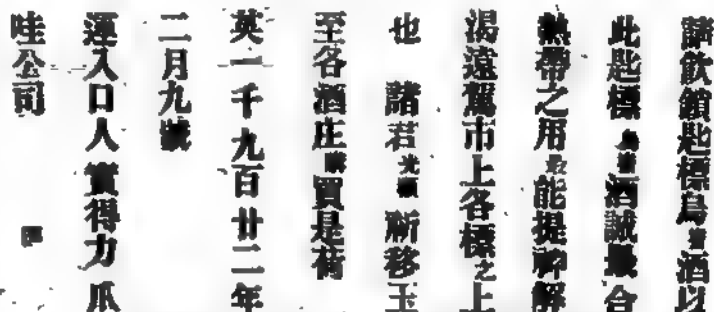 請飲鎖匙標烏啤酒以
此匙標烏啤酒誠最合
熱帶之用最能提神解
渴遠駕市上各標之上
也 諸君光顧 漸移玉
至各酒庄購買是荷
英一千九百廿二年
二月九號
運入口人 實得力 爪
哇公司